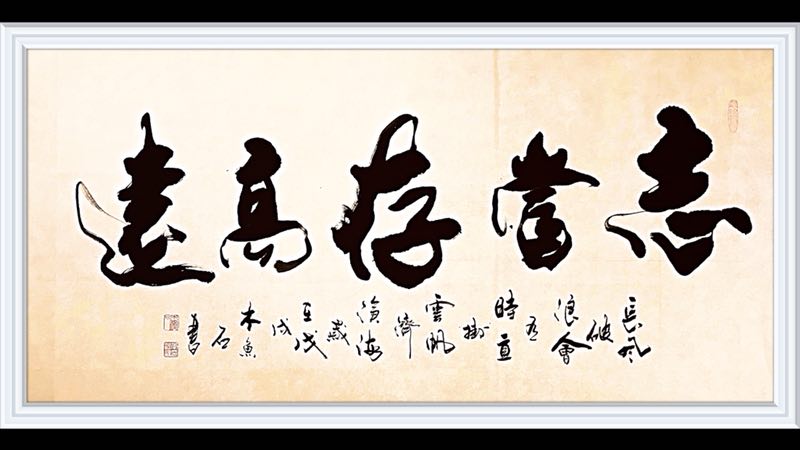 志當存高遠
長風破浪會有時直掛雲帆濟滄海歲在戊戌木魚石書